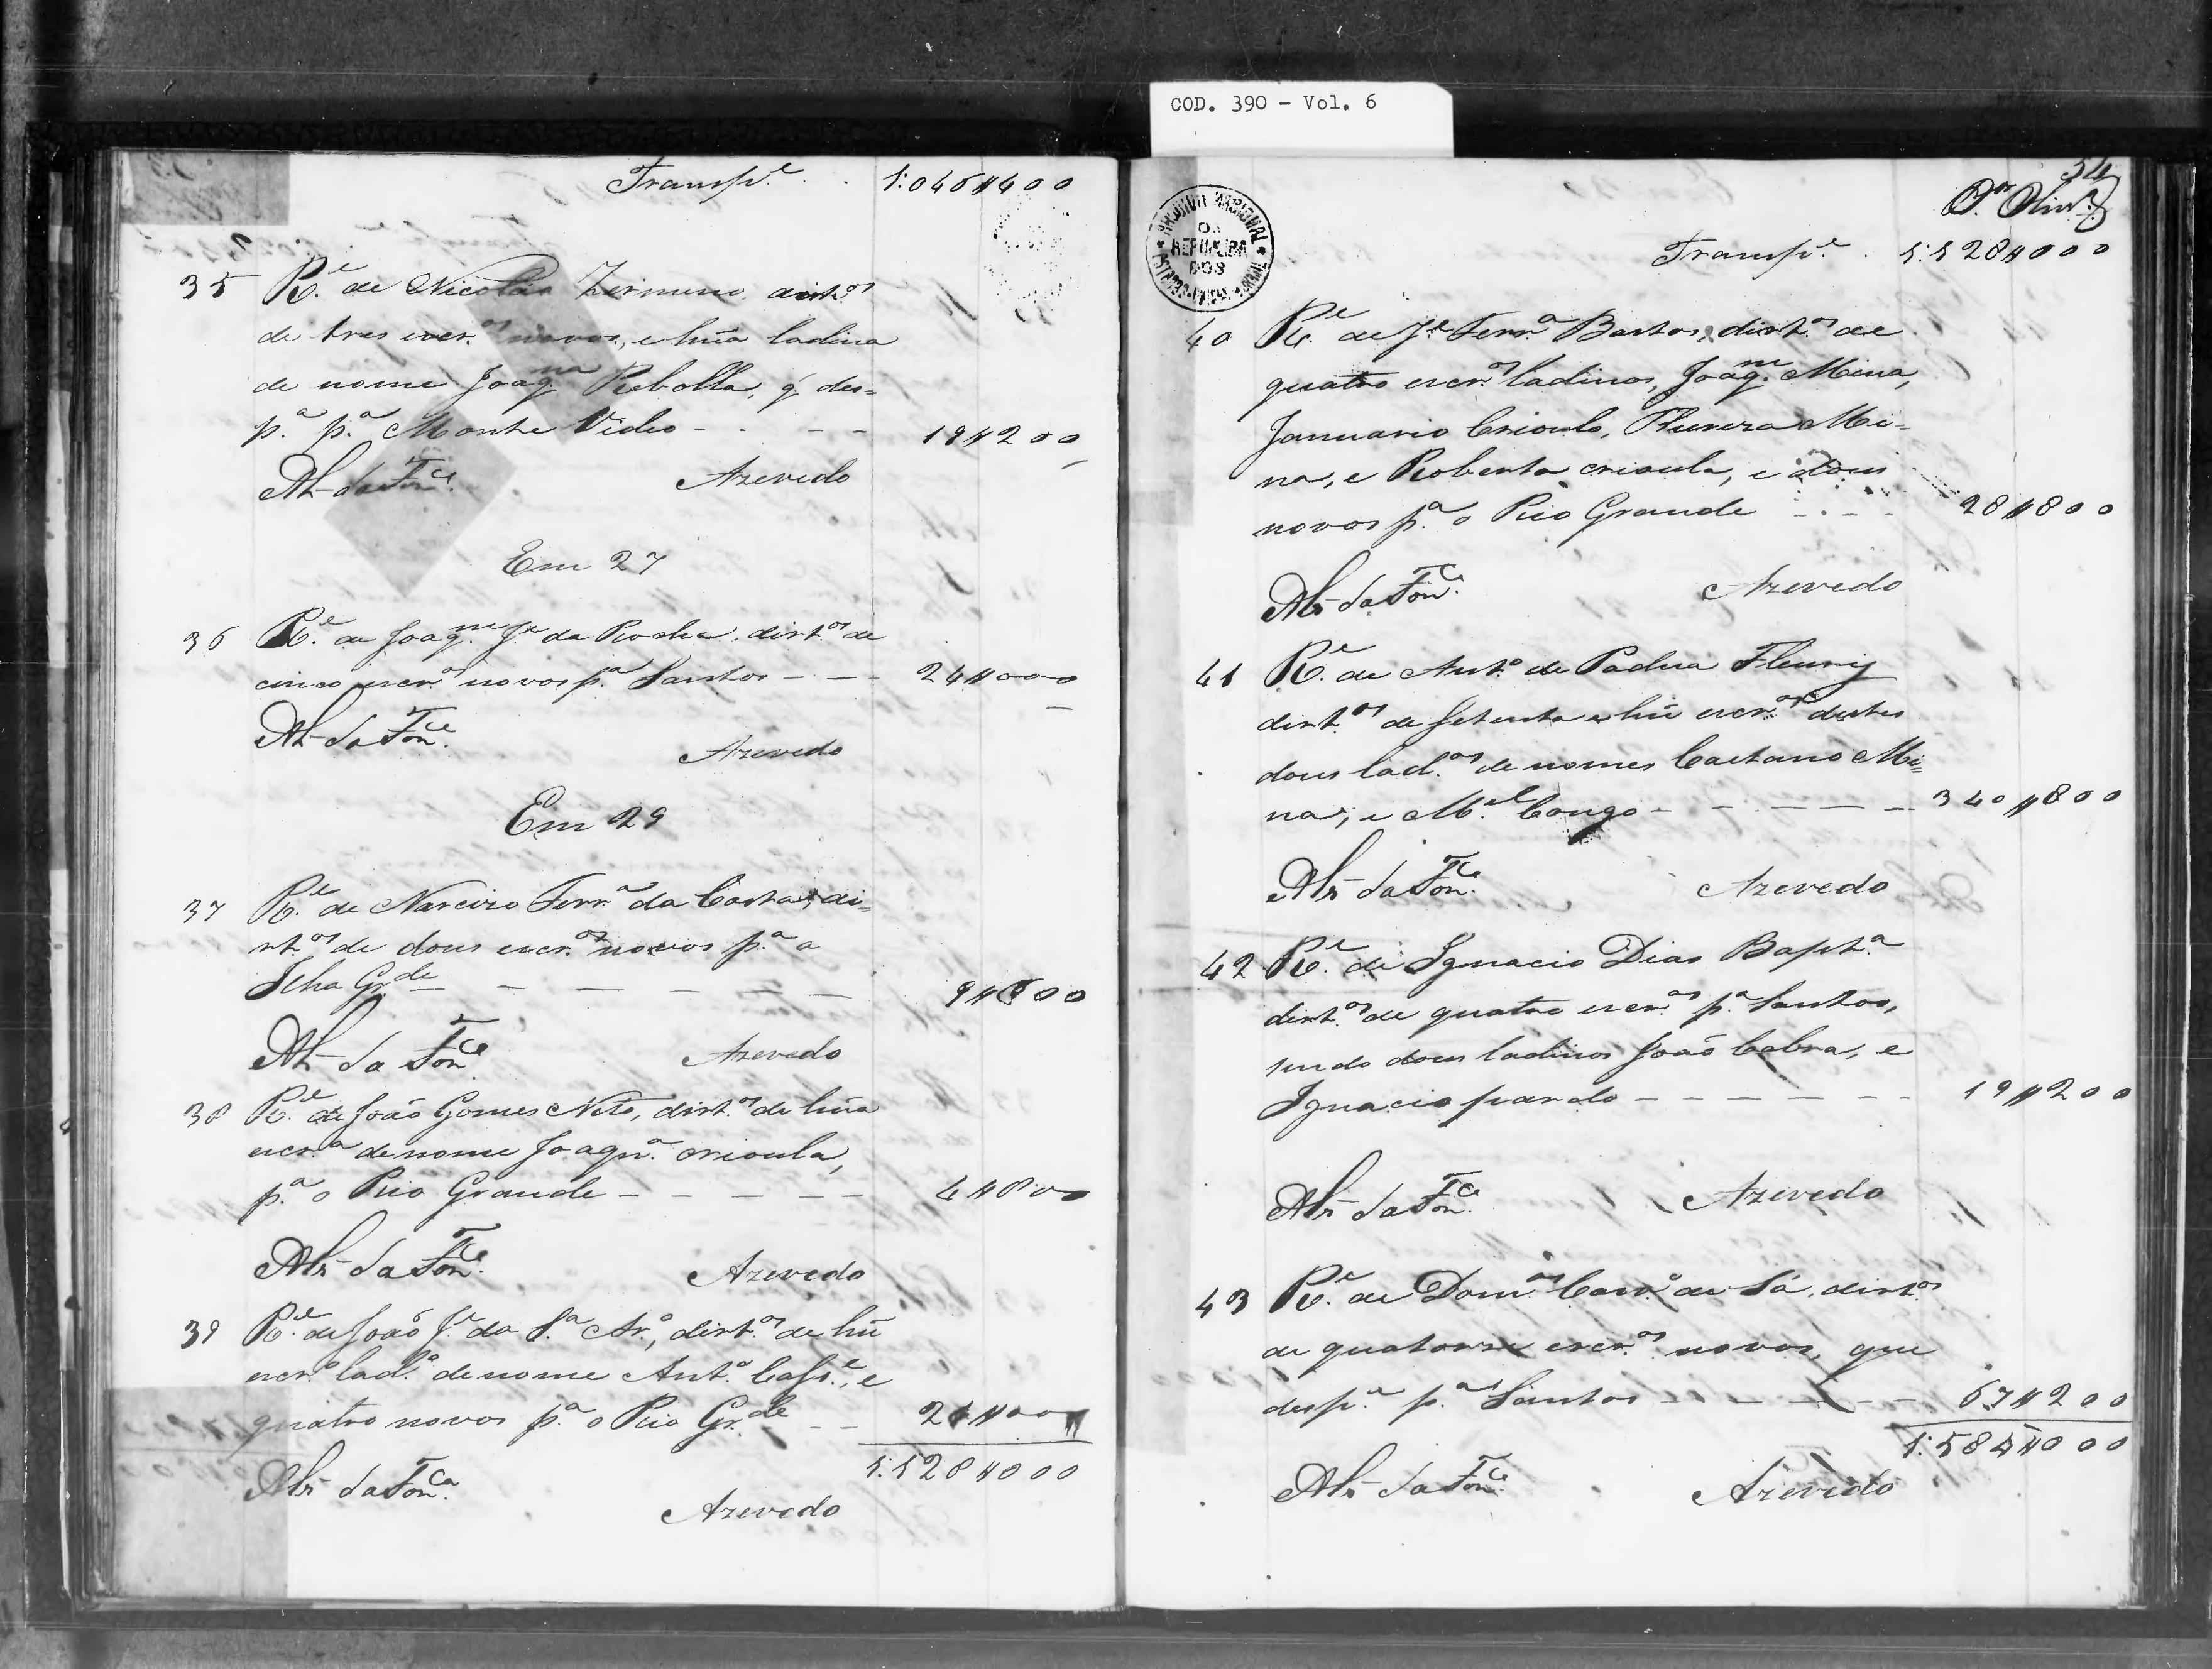 COD. 390 - Vol. 6
Transp.e . 1:046$400
35 R.e de Nicoláo dirt.os
de tres escr.os novos, e hũa ladina
de nome Joaq.na Rebolla, q' des=
p.a p.a Monte Video - - - - 19$200
Al- da Fon.ca Azevedo
Em 27
36 R.e de Joaq.m J.e da Rocha, dirt.os de
cinco escr.os novos p.a Santos - - - 24$000
Al- da Fon.ca
Azevedo
Em 29
37 R.e de Narcizo Ferr.a da Costa, di=
rt.os de dous escr.os novos p.a a
Ilha Gr.de - - - - - - 9$600
Al- da Fon.ca Azevedo
38 R.e de João Gomes Neto, dirt.os de hũa
escr.a de nome Joaqn.a crioula,
p.a o Rio Grande - - - - - 4$800
Alz da Fon.ca Azevedo
39 R.e de João J.e da S.a Ar.o, dirt.os de hũ
escr.o lad.o de nome Ant.o Cass.e, e
quatro novos p.a o Rio Gr.de - - 24$000
1:128$000
Alz da Fon.ca
Azevedo
54
Transp.e . 1:128$000
ARCHIVO NACIONAL
REPUBLICA
DOS
40 R.e de J.e Ferr.a Bastos, dirt.os de
quatro escr.os ladinos, Joaq.m Mina,
Januario Crioulo, Mi=
na, e Roberta crioula, e dous
novos p.a o Rio Grande - - - 28$800
Alz da Fon.ca Azevedo
41 R.e de Ant.o de Padua Fleury
dirt.os de setenta e hũ escr.os destes
dous lad.os de nomes Caetano Mi=
na, e M.el Congo - - - - - 340$800
Alz da Fon.ca Azevedo
42 R.e de Ignacio Dias Bapt.a
dirt.os de quatro escr.os p.a Santos,
sendo dous ladinos João Cabra, e
Ignacio pardo - - - - - - 19$200
Alz da Fon.ca Azevedo
43 R.e de Dom.os Carv.o de Sá, dirt.os
de quatorze escr.os novos, que
desp.a p.a Santos - - - - 67$200
1:584$000
Alz da Fon.ca Azevedo